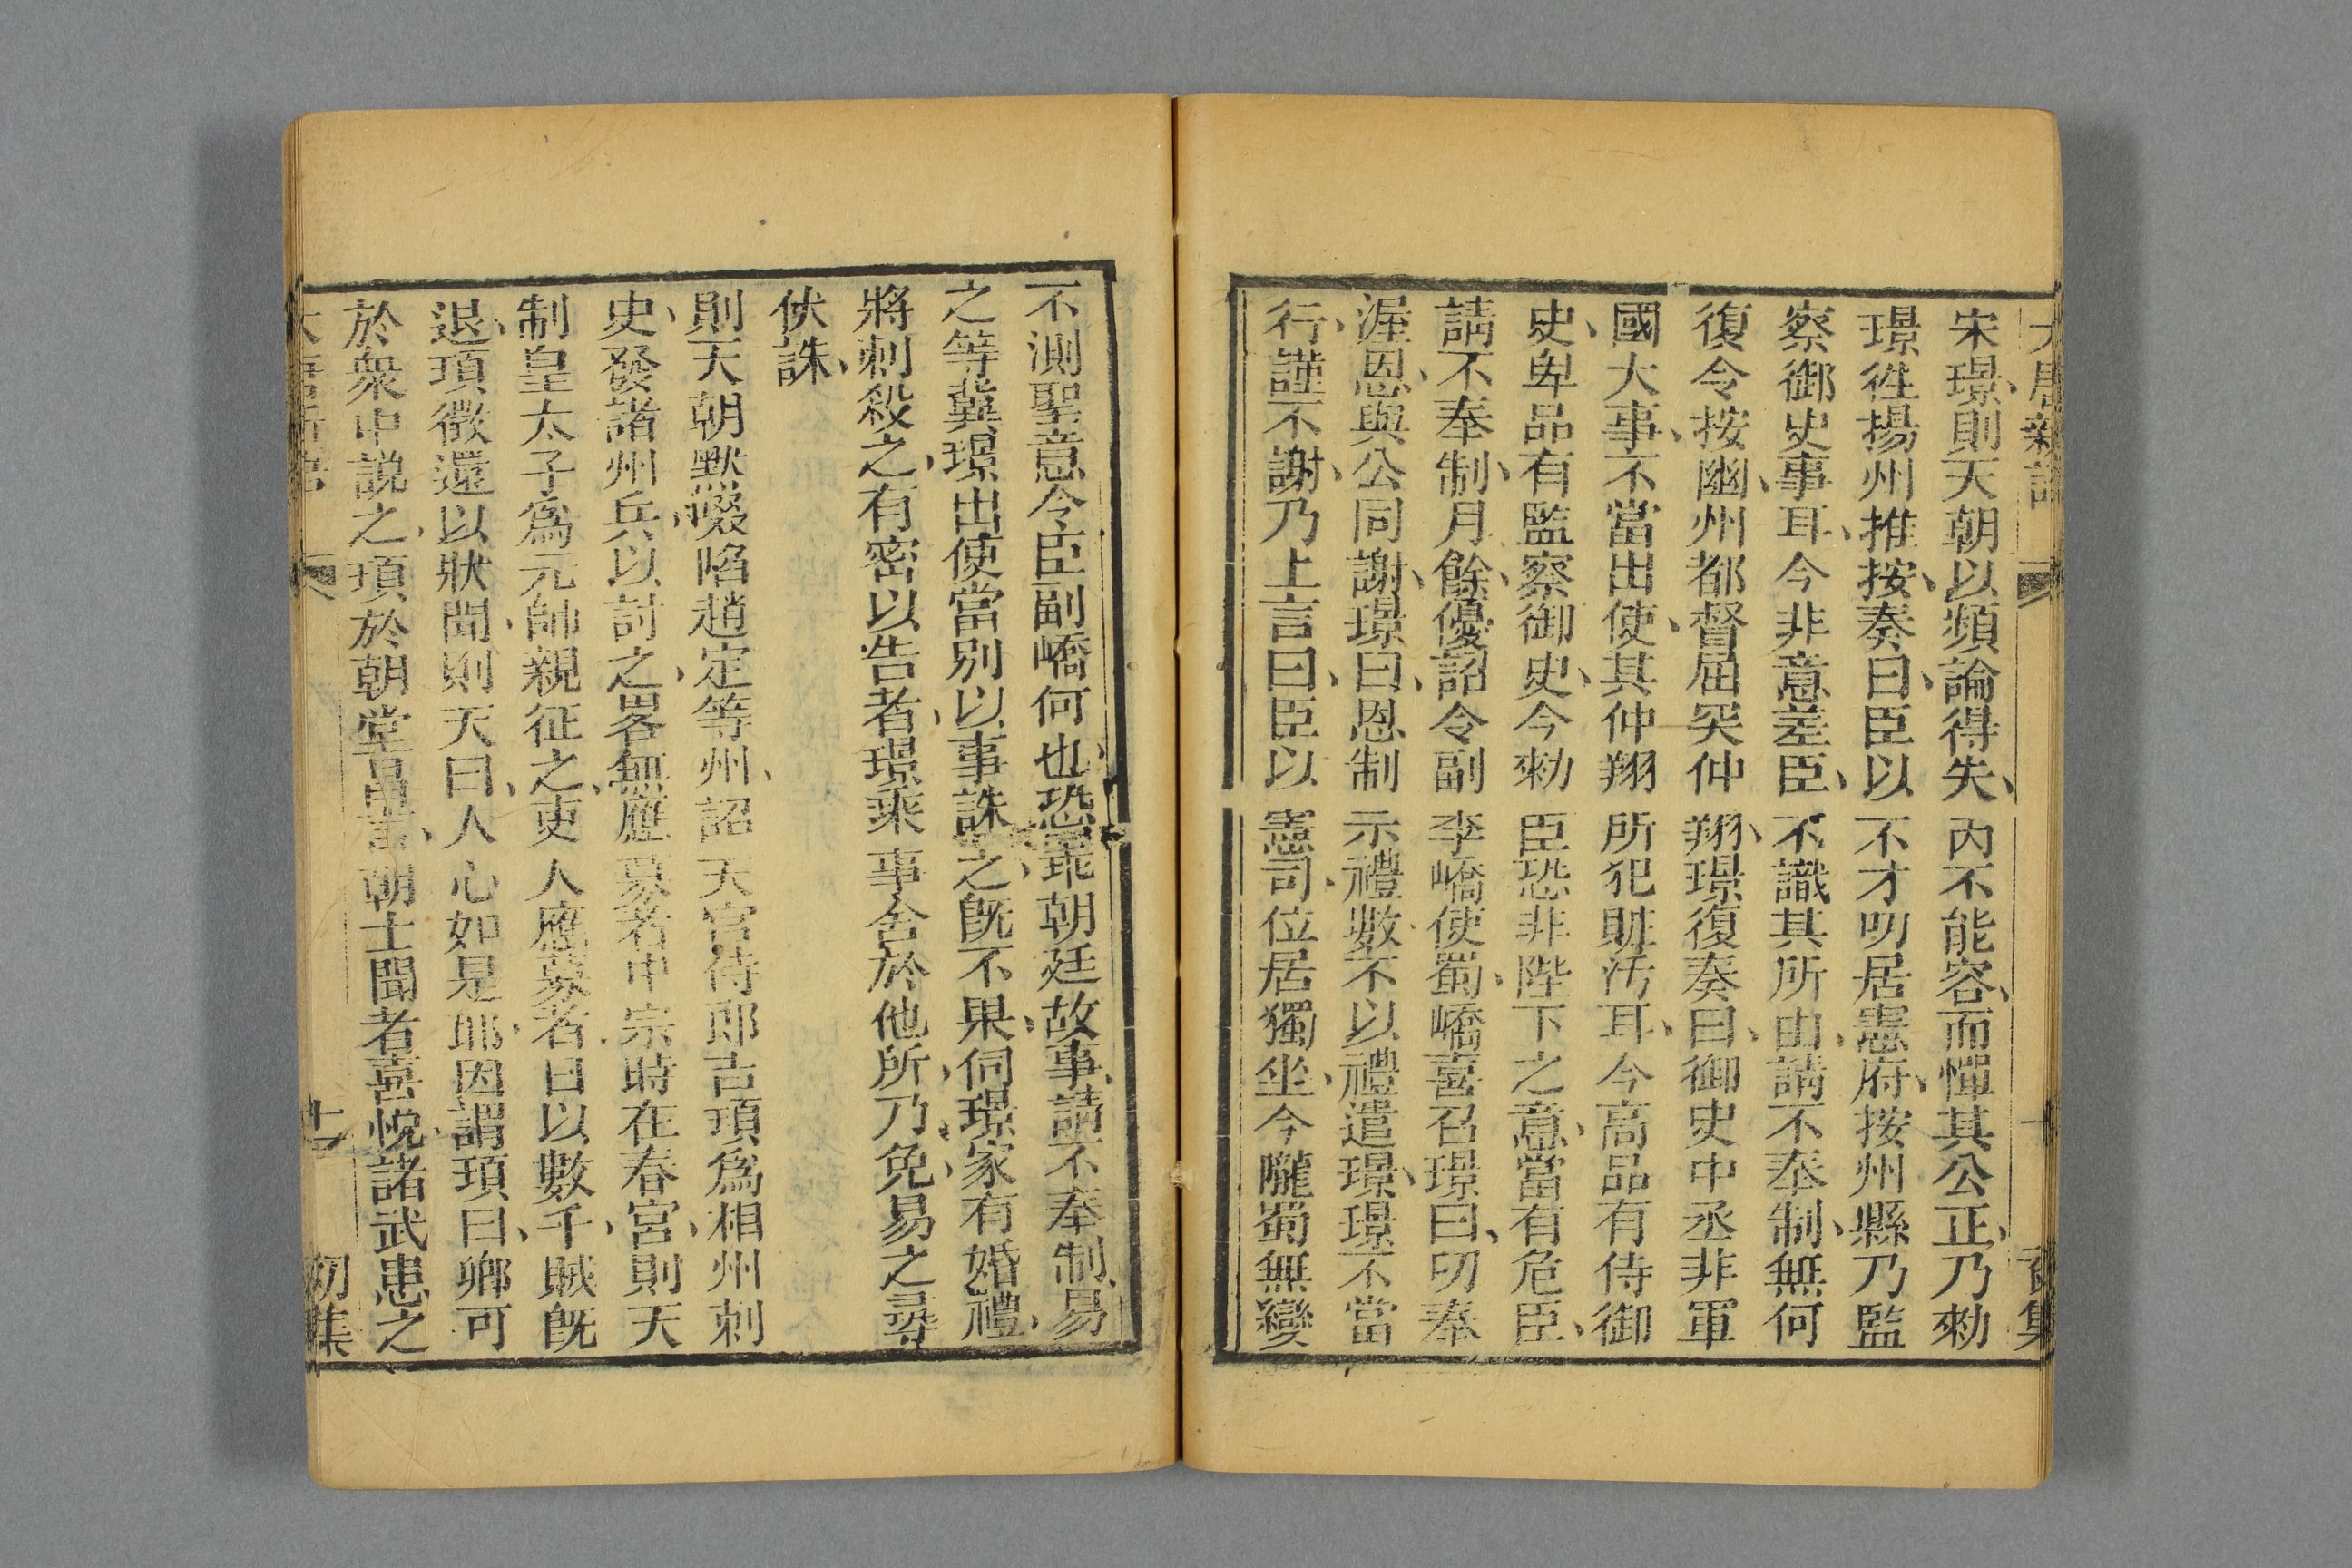 宋璟、則天朝以頻論得失、內不能容、而憚其公正、乃勑
璟徃揚州推按、奏曰、臣以不才叨居憲府、按州縣乃監
察御史事耳、今非意差臣、不識其所由、請不奉制、無何
復令按幽州都督屈突仲翔、璟復奏曰、御史中丞非軍
國大事、不當出使、其仲翔所犯賍汚耳、今高品有侍御
史、卑品有監察御史、今勑臣恐非陛下之意、當有危臣、
請不奉制、月餘、優詔令副李嶠使蜀、嶠喜召璟曰、叨奉
渥恩、與公同謝、璟曰、恩制示禮數不以禮遣璟、璟不當
行、謹不謝、乃上言曰、臣以憲司、位居獨坐、今隴蜀無變
不測聖意令臣副嶠何也、恐乖朝廷故事、請不奉制、易
之等冀璟出使當別以事誅之、旣不果、伺璟家有婚禮、
將刺殺之、有密以告者、璟乘事舍於他所、乃免、易之尋
伏誅、
則天朝默啜陷趙定等州、詔天官侍郎吉頊爲相州刺
史、發諸州兵、以討之、畧無應募者中宗時在春宮、則天
制皇太子爲元帥親征之、吏人應募者日以數千、賊旣
退、頊徵還以狀聞、則天曰、人心如是耶、因謂頊曰、卿可
於衆中説之、頊於朝堂昌言、朝士聞者喜悅、諸武患之
七
初集